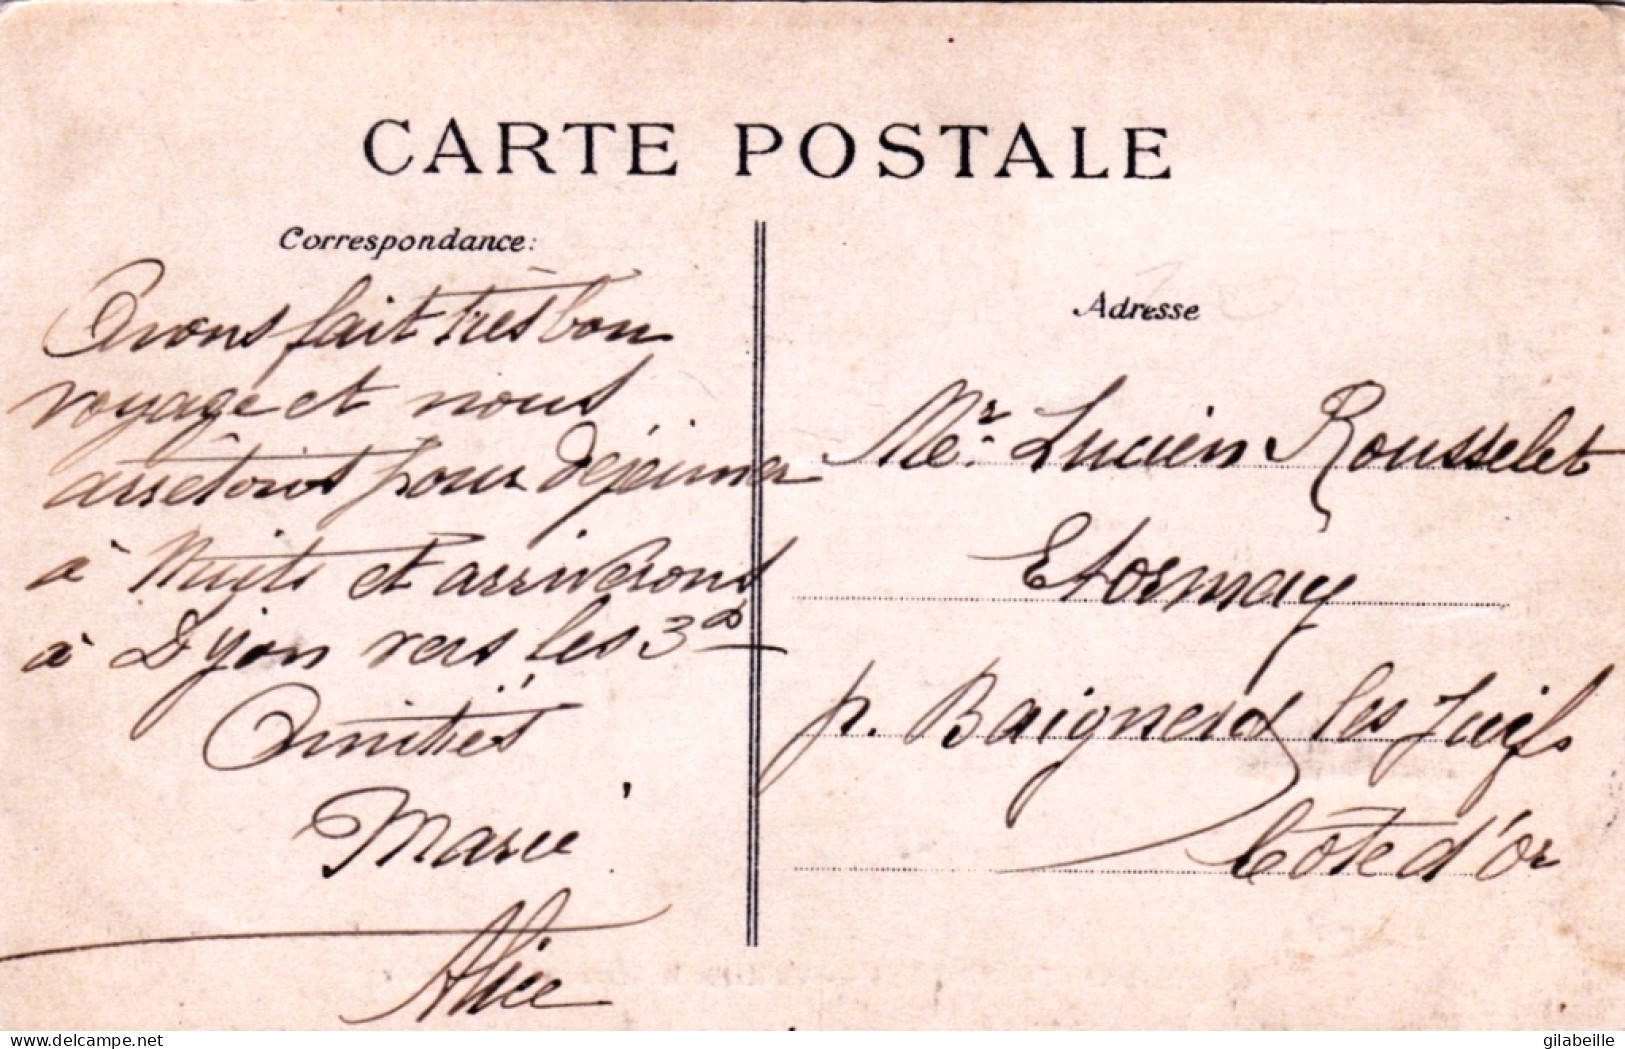 CARTE POSTALE
Correspondance:
Avons fait très bon
voyage et nous
arrêtons pour déjeuner
à Nuits et arriverons
à Dijon vers les 3
Amitiés
Marie
Alice
Adresse
Mr. Lucien Rousselet
Etormay
p. Baigneux les Juifs
Côte d'Or
delcampe.net
gilabeille